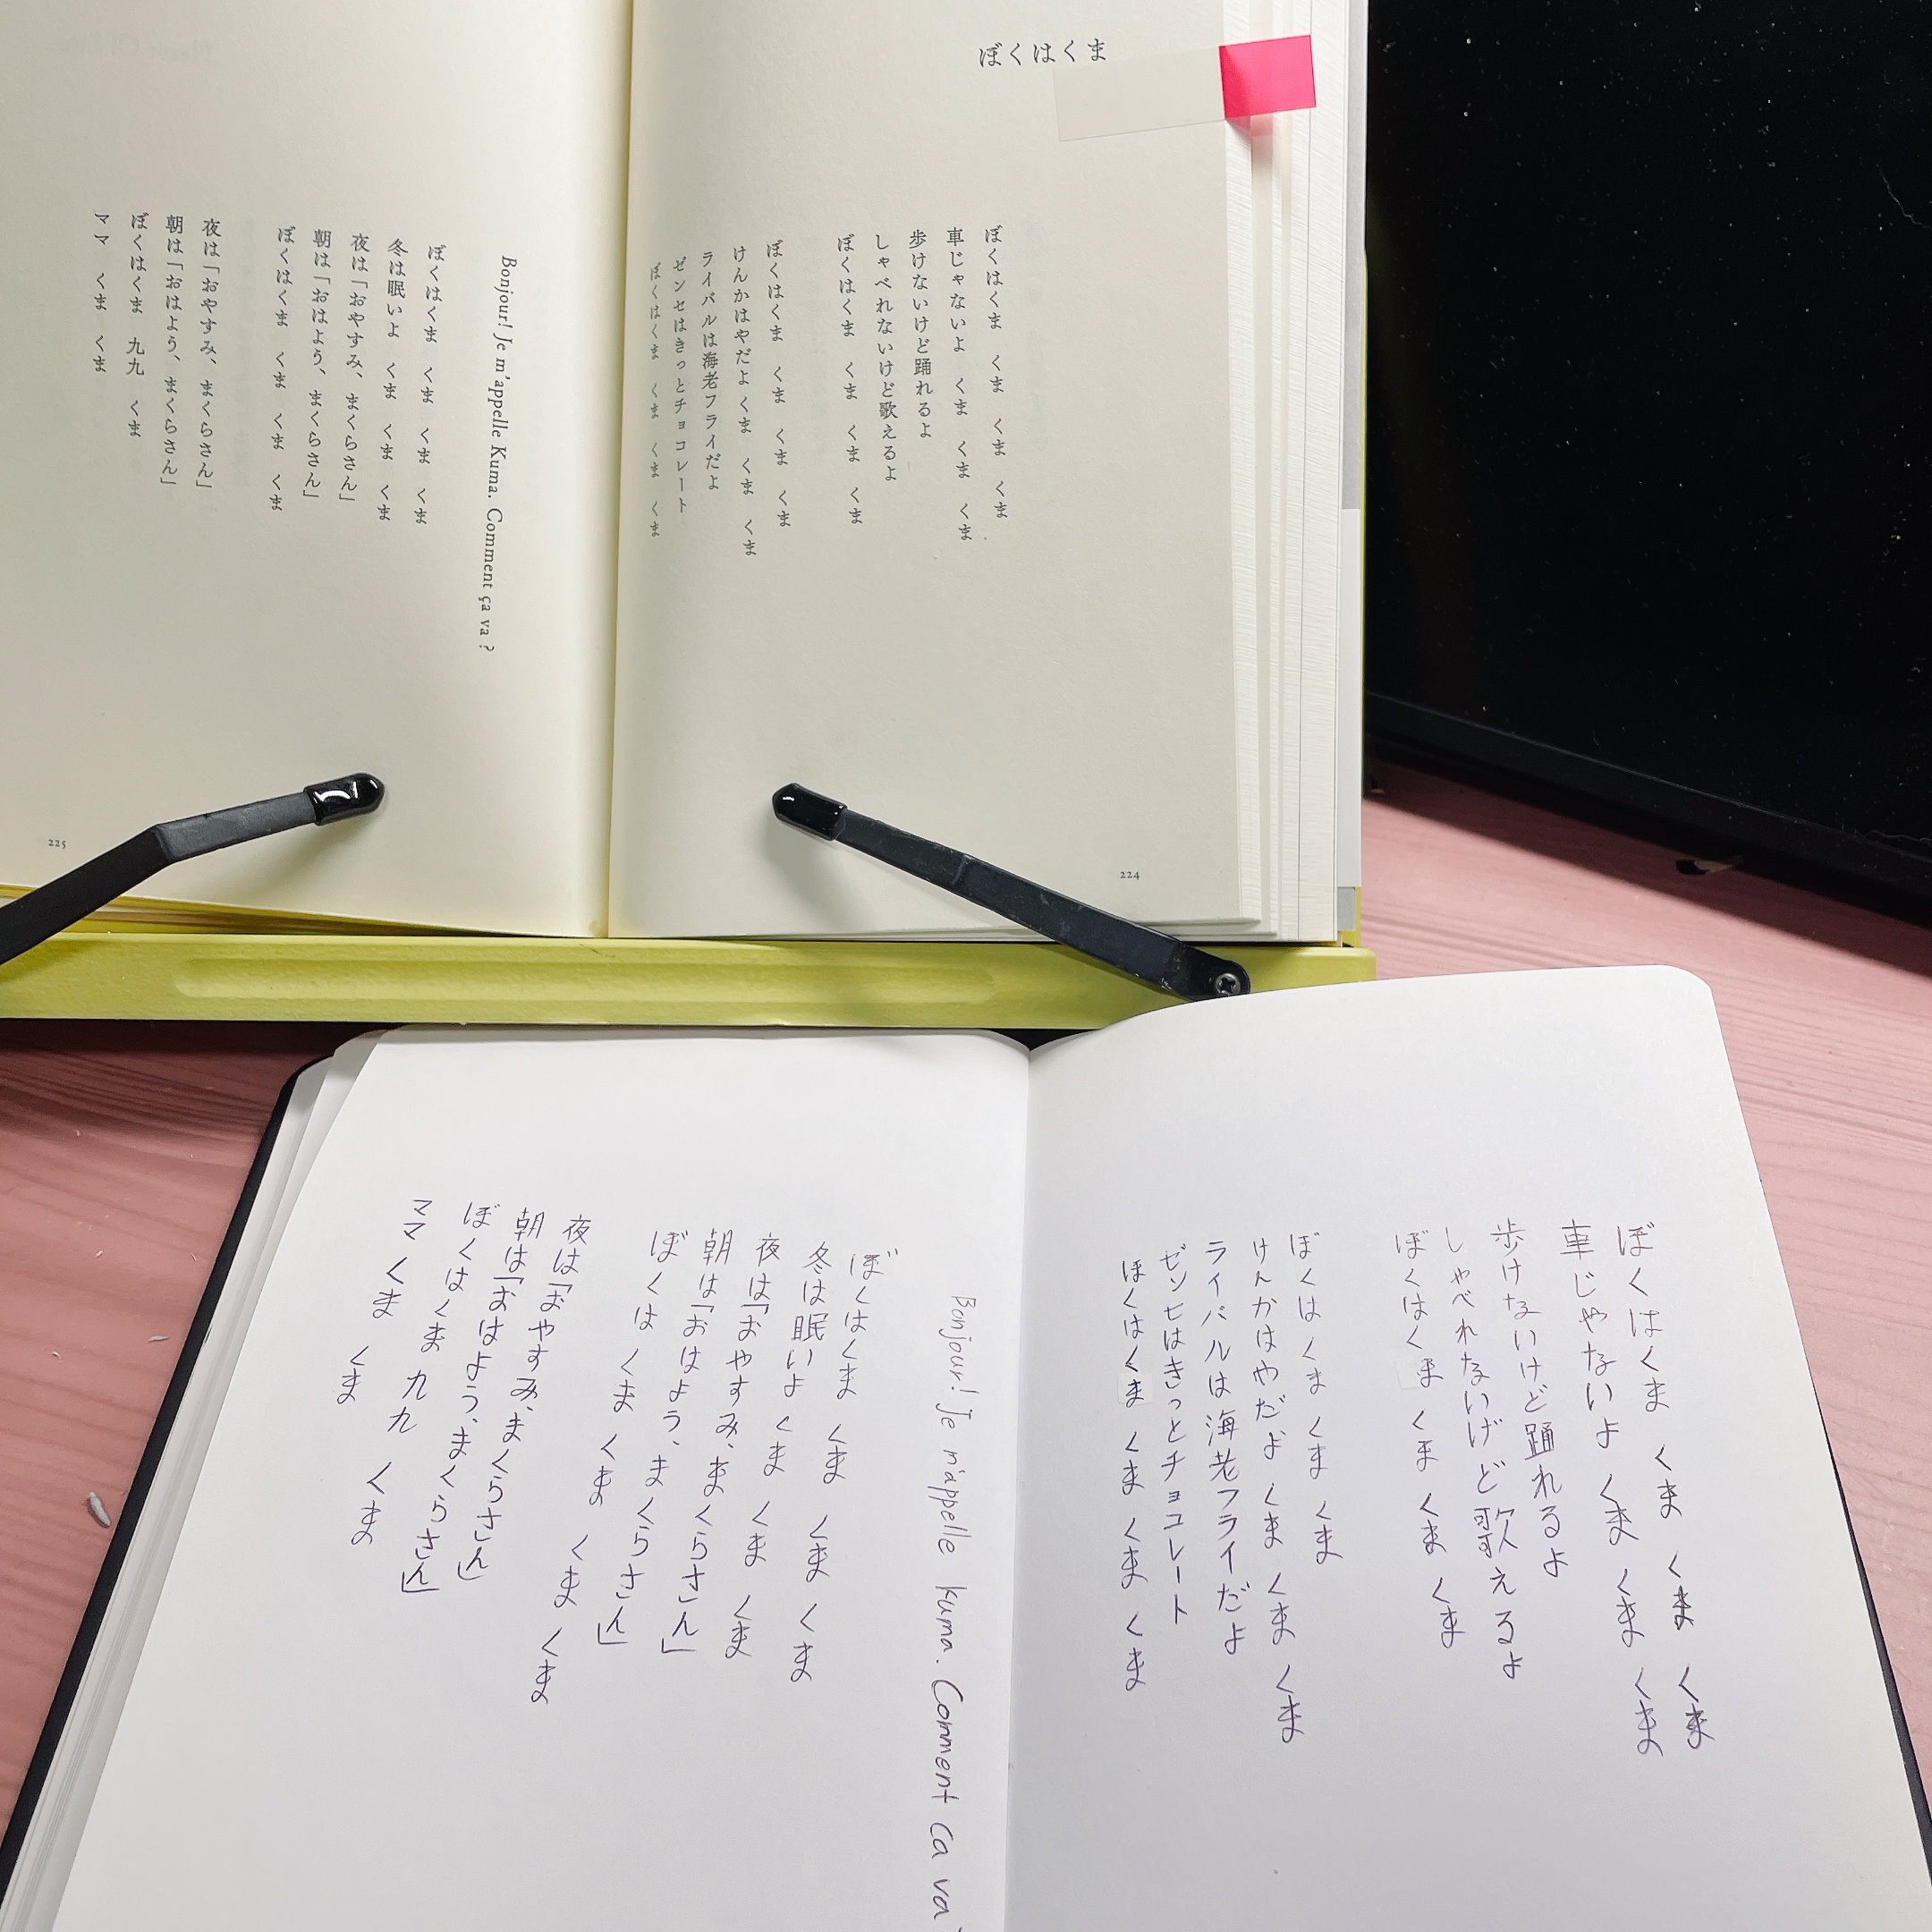 ぼくはくま
ぼくはくま くま くま くま
車じゃないよ くま くま くま
歩けないけど踊れるよ
しゃべれないけど歌えるよ
ぼくはくま くま くま くま
ぼくはくま くま くま くま
けんかはやだよ くま くま くま
ライバルは海老フライだよ
ゼンセはきっとチョコレート
ぼくはくま くま くま くま
224
Bonjour! Je m'appelle Kuma. Comment ça va ?
ぼくはくま くま くま くま
冬は眠いよ くま くま くま
夜は「おやすみ、まくらさん」
朝は「おはよう、まくらさん」
ぼくはくま くま くま くま
夜は「おやすみ、まくらさん」
朝は「おはよう、まくらさん」
ぼくはくま 九九 くま
ママ くま くま
225
ぼくはくま くま くま くま
車じゃないよ くま くま くま
歩けないけど踊れるよ
しゃべれないけど歌えるよ
ぼくはくま くま くま くま
ぼくはくま くま くま
けんかはやだよ くま くま くま
ライバルは海老フライだよ
ゼンセはきっとチョコレート
ぼくはくま くま くま くま
Bonjour! Je m'appelle kuma. Comment Ca va
ぼくはくま くま くま くま
冬は眠いよ くま くま くま
夜は「おやすみ、まくらさん」
朝は「おはよう、まくらさん」
ぼくは くま くま くま くま
夜は「おやすみ、まくらさん」
朝は「おはよう、まくらさん」
ぼくはくま 九九 くま
ママ くま くま